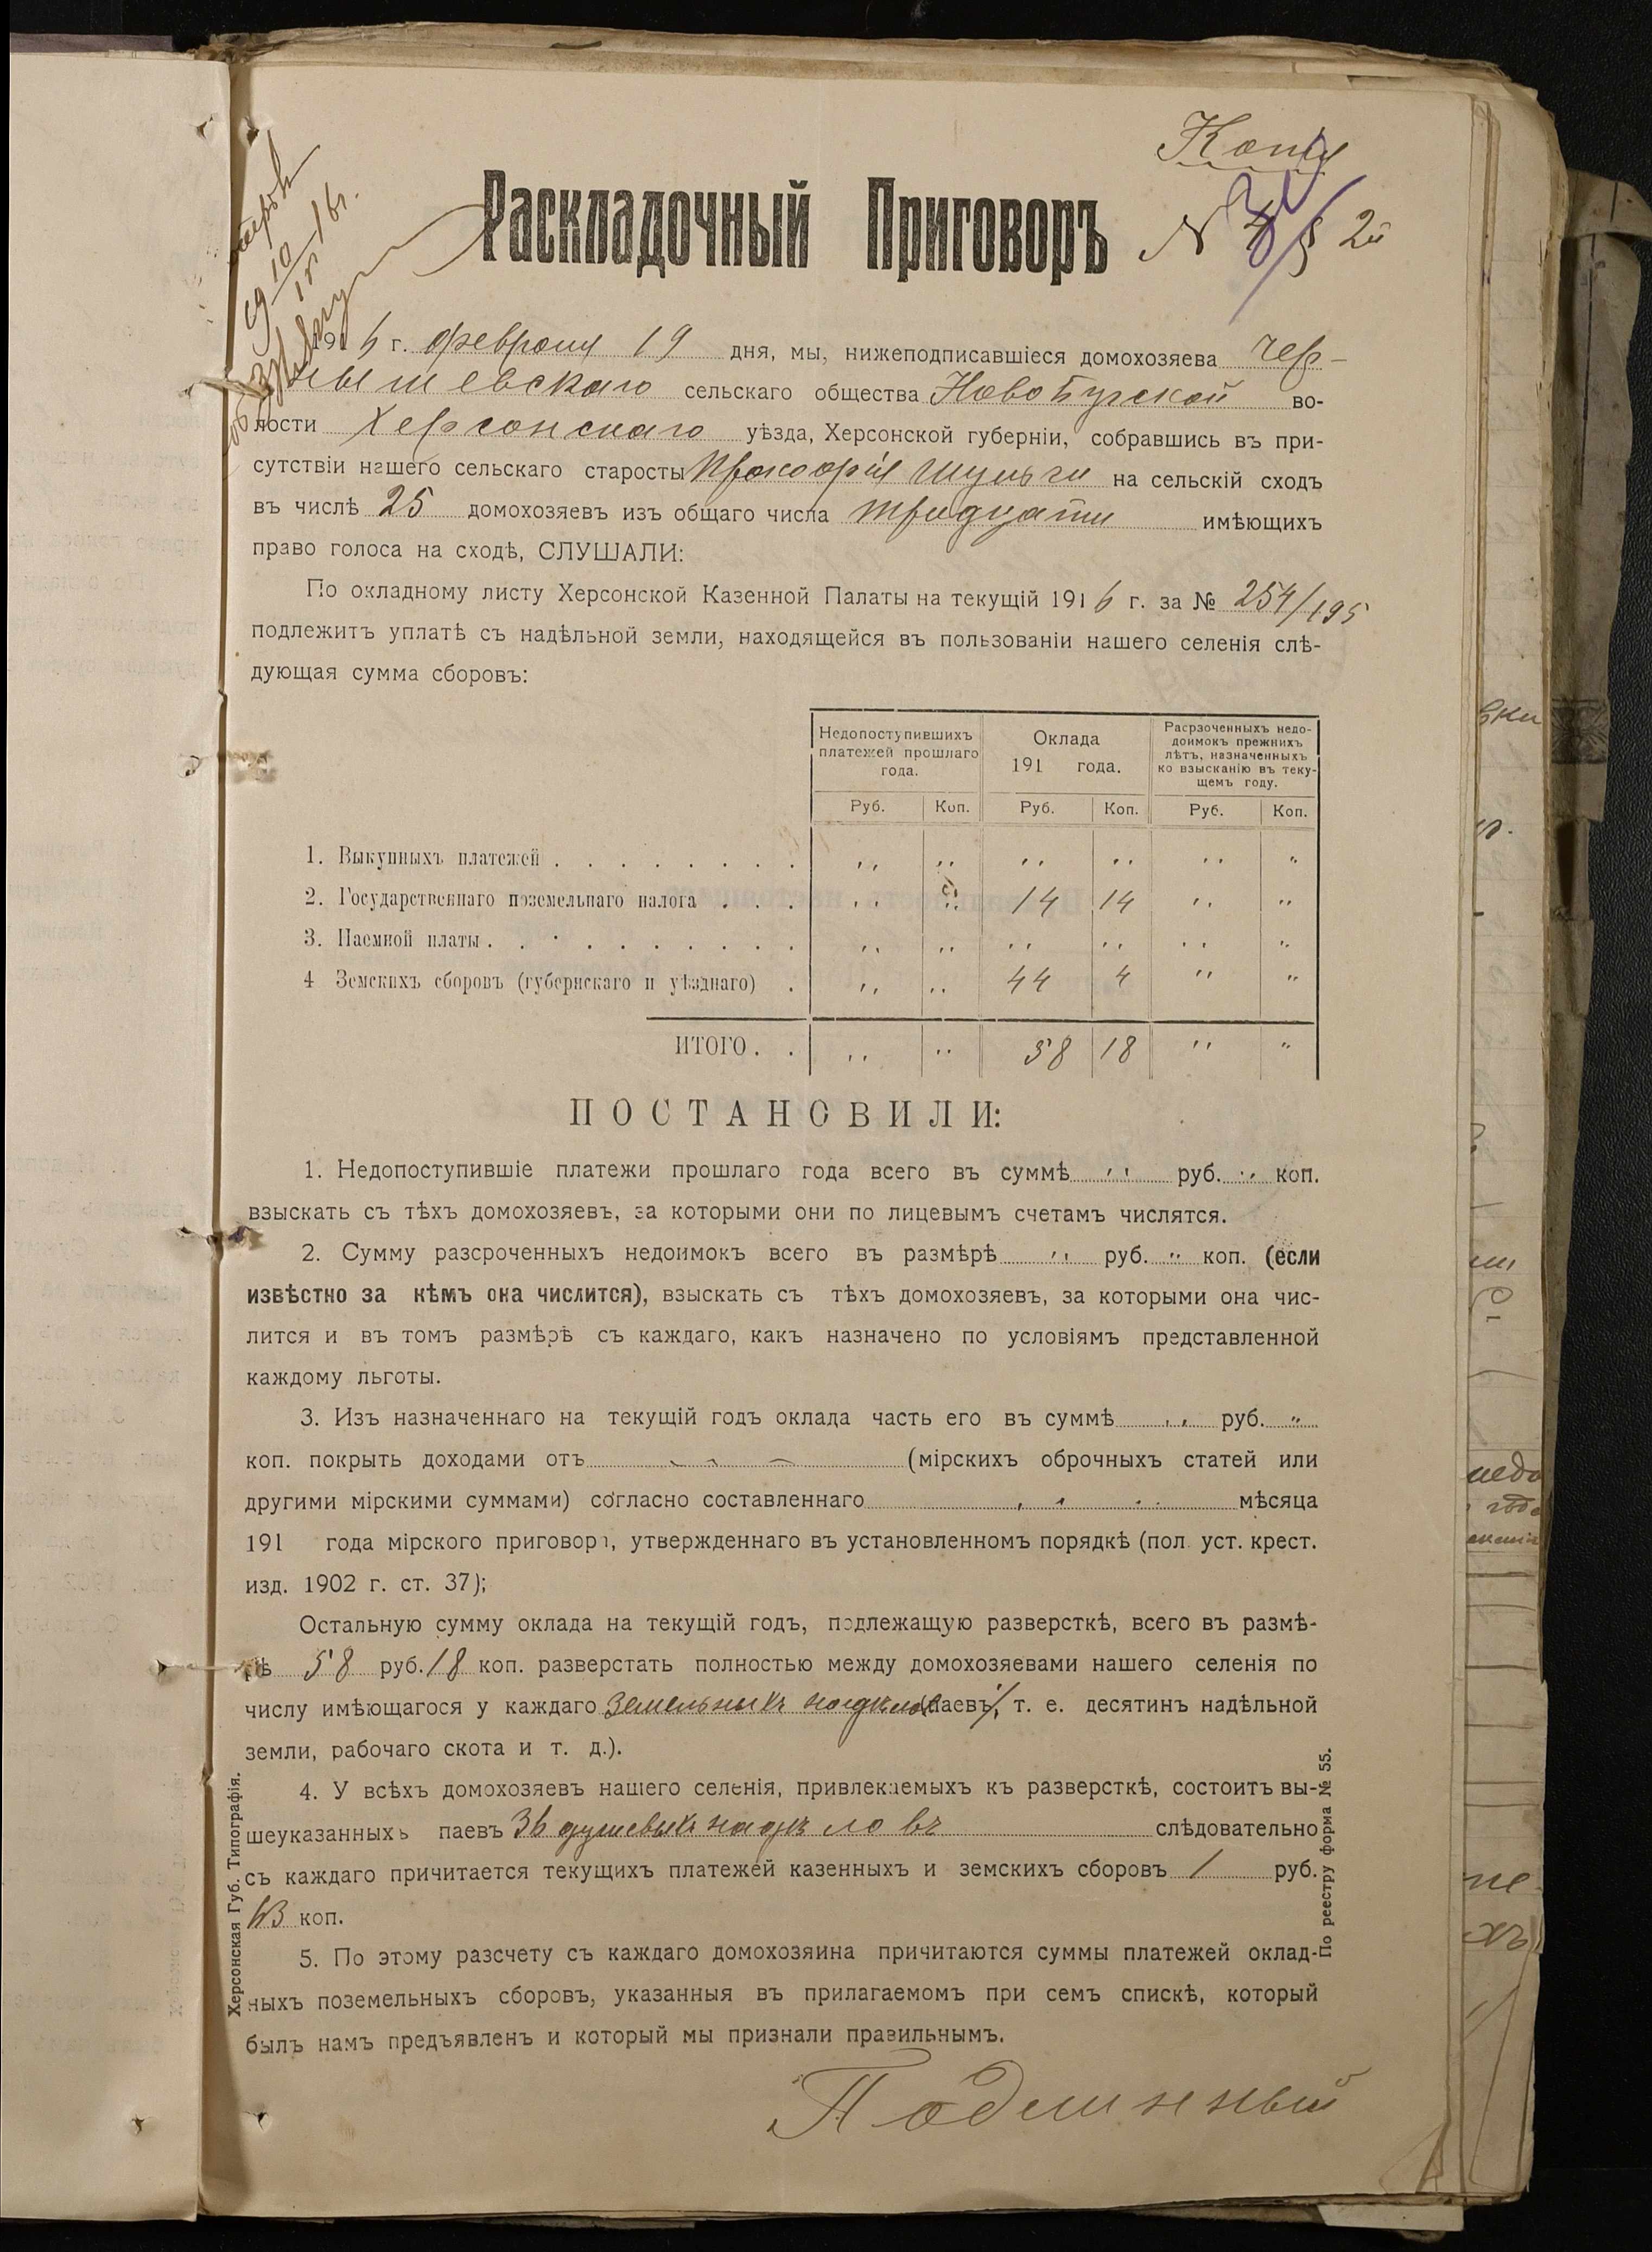 Копія
Раскладочный Приговоръ № 2й
1916 г. февраля 19 дня, мы, нижеподписавшіеся домохозяева Чер-
нышевскаго сельскаго общества Новобугской во-
лости Херсонскаго уѣзда, Херсонской губерніи, собравшись въ при-
сутствіи нашего сельскаго старосты Прокофія Шульги на сельскій сходъ
въ числѣ 25 домохозяевъ изъ общаго числа тридцати имѣющихъ
право голоса на сходѣ, СЛУШАЛИ:
По окладному листу Херсонской Казенной Палаты на текущій 1916 г. за № 254/195
подлежитъ уплатѣ съ надѣльной земли, находящейся въ пользованіи нашего селенія слѣ-
дующая сумма сборовъ:
Недопоступившихъ платежей прошлаго года. Оклада 191 года. Расрзоченныхъ недо-
доимокъ прежнихъ
лѣтъ, назначенныхъ
ко взысканію въ теку-
щемъ году.
Руб. Коп. Руб. Коп. Руб. Коп.
1. Выкупныхъ платежей . . . . . . . . „ „ „ „ „ „
2. Государственнаго поземельнаго налога . . . „ „ 14 14 „ „
3. Наемной платы . . . . . . . . . „ „ „ „ „ „
4 Земскихъ сборовъ (губернскаго и уѣзднаго) . „ „ 44 4 „ „
ИТОГО . . „ „ 58 18 „ „
ПОСТАНОВИЛИ:
1. Недопоступившіе платежи прошлаго года всего въ суммѣ „ руб. „ коп.
взыскать съ тѣхъ домохозяевъ, за которыми они по лицевымъ счетамъ числятся.
2. Сумму разсроченныхъ недоимокъ всего въ размѣрѣ „ руб. „ коп. (если
извѣстно за кѣмъ она числится), взыскать съ тѣхъ домохозяевъ, за которыми она чис-
лится и въ томъ размѣрѣ съ каждаго, какъ назначено по условіямъ представленной
каждому льготы.
3. Изъ назначеннаго на текущій годъ оклада часть его въ суммѣ „ руб. „
коп. покрыть доходами отъ (мірскихъ оброчныхъ статей или
другими мірскими суммами) согласно составленнаго мѣсяца
191 года мірского приговора, утвержденнаго въ установленномъ порядкѣ (пол. уст. крест.
изд. 1902 г. ст. 37);
Остальную сумму оклада на текущій годъ, подлежащую разверсткѣ, всего въ размѣ-
рѣ 58 руб. 18 коп. разверстать полностью между домохозяевами нашего селенія по
числу имѣющагося у каждаго земельныхъ надѣловъ (паевъ), т. е. десятинъ надѣльной
земли, рабочаго скота и т. д.).
4. У всѣхъ домохозяевъ нашего селенія, привлекаемыхъ къ разверсткѣ, состоитъ вы-
шеуказанныхъ паевъ 36 душевыхъ надѣловъ слѣдовательно
съ каждаго причитается текущихъ платежей казенныхъ и земскихъ сборовъ 1 руб.
63 коп.
5. По этому разсчету съ каждаго домохозяина причитаются суммы платежей оклад-
ныхъ поземельныхъ сборовъ, указанныя въ прилагаемомъ при семъ спискѣ, который
былъ намъ предъявленъ и который мы признали правильнымъ.
Подлинный
Херсонская Губ. Типографія.
По реестру форма № 55.